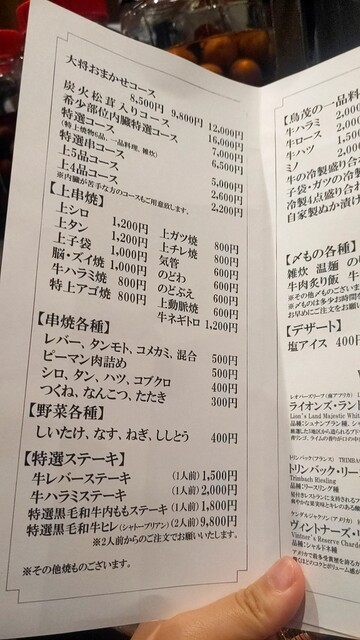 大将おまかせコース
8,500円 9,800円 12,000円
炭火松茸入りコース 16,000円
希少部位内臓特選コース 7,000円
特選コース 6,500円
(特上焼物6品、一品料理、雑炊)
特選串コース 5,000円
上5品コース 2,600円
上4品コース 2,200円
※内臓が苦手な方のコースもご用意致します。
【上串焼】
上シロ 1,200円
上タン 1,200円
上子袋 1,000円
脳・ズイ焼 1,000円
牛ハラミ焼 800円
特上アゴ焼 800円
上ガツ焼 800円
上チレ焼 800円
気管 600円
のどわ 600円
のどぶえ 600円
上動脈焼 600円
牛ネギトロ 1,200円
【串焼各種】
レバー、タンモト、コメカミ、混合 500円
ピーマン肉詰め 500円
シロ、タン、ハツ、コブクロ 400円
つくね、なんこつ、たたき 300円
【野菜各種】
しいたけ、なす、ねぎ、ししとう 400円
【特選ステーキ】
牛レバーステーキ (1人前) 1,500円
牛ハラミステーキ (1人前) 2,000円
特選黒毛和牛内ももステーキ (1人前) 1,800円
特選黒毛和牛ヒレ(シャトーブリアン) (2人前) 9,800円
※2人前からのご注文でお願いいたします。
※その他焼もございます。
【鳥茂の一品料
牛ハラミ 2,000
牛ロース 2,000
牛ハツ 1,500
ミノ 2,000
牛の冷製盛り合
子袋・ガツの冷製
冷製4点盛り合
自家製ぬか漬け
【〆もの各種】
雑炊 温麺 の
牛肉炙り飯 牛
※その他〆ものございま
※〆ものは多少お時間を
お早めにご注文をお願い
【デザート】
塩アイス 400円
レオパーズリープ(南アフリカ) L
ライオンズ・ランド
Lion's Land Majestic White
品種:シュナンブラン種、シャ
トリンバック(フランス) TRIMBA
トリンバック・リー
Trimbach Riesling
品種:リースリング種
ケンダルジャクソン(アメリカ)
ヴィントナーズ・リ
Vintner's Reserve Chardo
品種:シャルドネ種